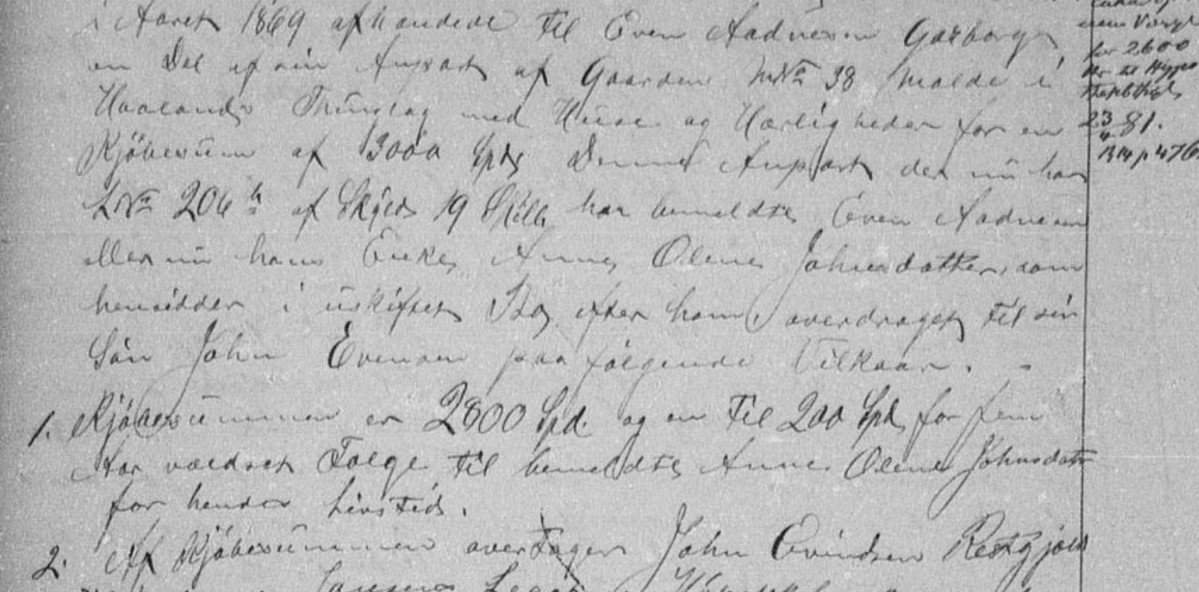 i Aaret 1869 afhændede til Even Aadnesen Garborg
en Del af sin Anpart af Gaarden MNo 38 Malde i
Haalands Thinglag med Huse og Herligheder for en
Kjöbesum af 3000 Spd Denne Anpart der nu har
LNo 206 b af Skyld 19 Skill har bemeldte Even Aadnesen
eller nu hans Enke, Anne Olene Johnsdatter, som
hensidder i uskiftet Bo efter ham, overdraget til sin
Sön John Evensen paa følgende Vilkaar. -
1. Kjöbesummen er 2800 Spd. og en til 200 Spd for fem
Aar værdset Folge til bemeldte Anne Olene Johnsdatr
for hendes Livstid.
2. Af Kjöbesummen overtager John Evindsen Restgjæld
for 2600
23 81.
B14 p 476